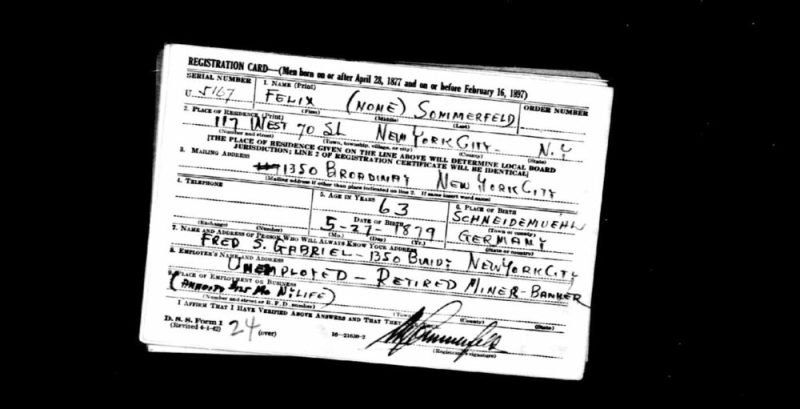 REGISTRATION CARD—(Men born on or after April 28, 1877 and on or before February 16, 1897)
SERIAL NUMBER 1. NAME (Print) ORDER NUMBER
U 5167 FELIX (NONE) SOMMERFELD
(First) (Middle) (Last)
2. PLACE OF RESIDENCE (Print)
117 WEST 70 St NEW YORK CITY N.Y
(Number and street) (Town, township, village, or city) (County) (State)
[THE PLACE OF RESIDENCE GIVEN ON THE LINE ABOVE WILL DETERMINE LOCAL BOARD
JURISDICTION; LINE 2 OF REGISTRATION CERTIFICATE WILL BE IDENTICAL]
3. MAILING ADDRESS
1350 BROADWAY NEW YORK CITY
[Mailing address if other than place indicated on line 2. If same insert word same]
4. TELEPHONE 5. AGE IN YEARS 6. PLACE OF BIRTH
63 SCHNEIDEMUEHL
DATE OF BIRTH (Town or county)
5-27-1879 GERMANY
(Exchange) (Number) (Mo.) (Day) (Yr.) (State or country)
7. NAME AND ADDRESS OF PERSON WHO WILL ALWAYS KNOW YOUR ADDRESS
FRED S. GABRIEL - 1350 BWAY NEW YORK CITY
8. EMPLOYER'S NAME AND ADDRESS
UNEMPLOYED - RETIRED MINER-BANKER
9. PLACE OF EMPLOYMENT OR BUSINESS
LIFE)
(Number and street or R. F. D. number) (Town) (County) (State)
I AFFIRM THAT I HAVE VERIFIED ABOVE ANSWERS AND THAT THEY
D. S. S. Form 1
(Revised 4-1-42) 24 (over) 16—21630-2 (Registrant's signature)